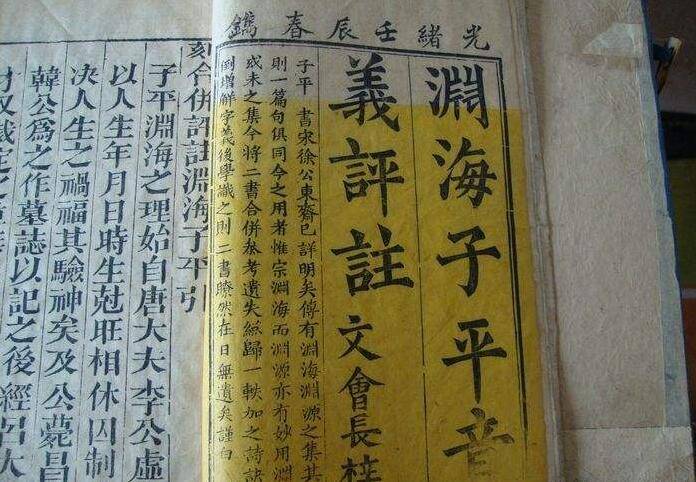 光緒壬辰春鐫
淵海子平音
義評註 文會長梓
子平書宋徐公東齋已詳明矣傳有淵海淵源之集其
則一篇句俱同今之用者惟宗淵海而淵源亦有妙用淵
或未之集今將二書合併叅考遺失總歸一帙加之詩訣
倒增解字義後學識之則二書瞭然在目無遺矣謹白
刻合併評註淵海子平引
子平淵海之理始自唐大夫李公虛
以人生年月日時生尅旺相休囚制
决人生之禍福其驗神矣及公薨昌
韓公為之作墓誌以記之後經呂大